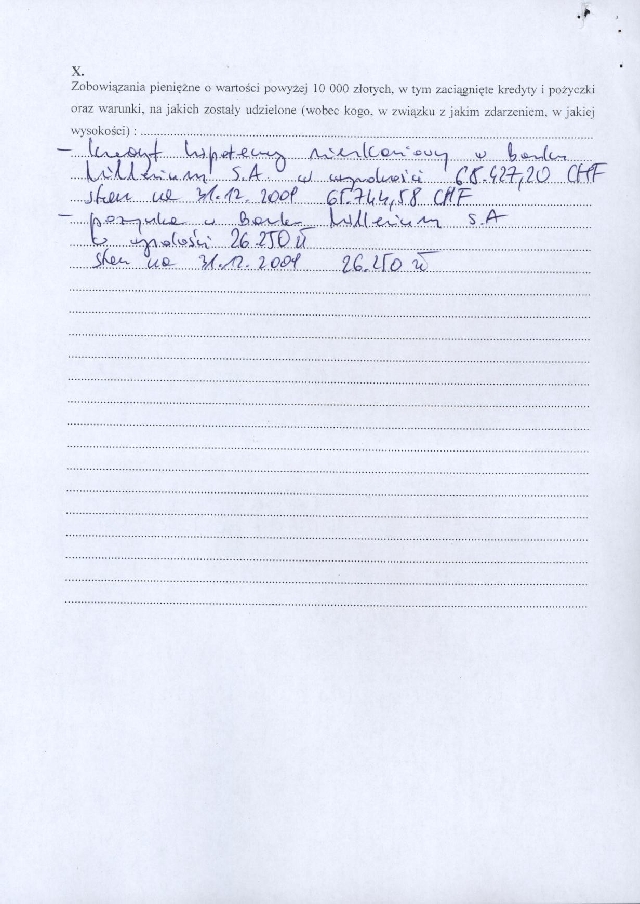 X.
Zobowiązania pieniężne o wartości powyżej 10 000 złotych, w tym zaciągnięte kredyty i pożyczki
oraz warunki, na jakich zostały udzielone (wobec kogo, w związku z jakim zdarzeniem, w jakiej
wysokości) :
– kredyt hipoteczny mieszkaniowy w Banku
Millenium S.A. w wysokości 68.427,20 CHF
stan na 31.12.2009 65.744,58 CHF
– pożyczka w Banku Millenium S.A
w wysokości 26.250 zł
stan na 31.12.2009 26.250 zł